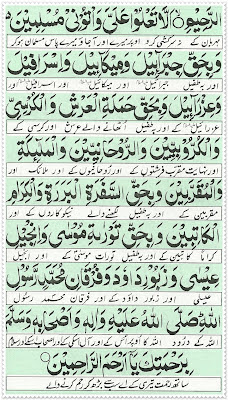 الرَّحِيْمِ اَلَّا تَعْلُوْا عَلَيَّ وَأْتُوْنِيْ مُسْلِمِيْنَ
مہربان کے نہ سرکشی کرو اوپر میرے اور آجاؤ میرے پاس مسلمان ہوکر
وَبِحَقِّ جِبْرَآئِيْلَ وَمِيْكَآئِيْلَ وَاِسْرَافِيْلَ
اور بطفیل جبرائیل اور میکائیل اور اسرافیل
وَعِزْرَآئِيْلَ وَبِحَقِّ حَمَلَةِ الْعَرْشِ وَالْكُرْسِيِّ
عزرائیل کے اور بطفیل اٹھانے والے عرش اور کرسی کے
وَالْكَرُوْبِيِّيْنَ وَالرُّوْحَانِيِّيْنَ وَالْمَلٰٓئِكَةِ
اور نہایت مقرب فرشتوں کے اور روحانیوں کے اور ملائکہ
وَالْمُقَرَّبِيْنَ وَبِحَقِّ السَّفَرَةِ الْبَرَرَةِ وَالْكِرَامِ
مقربین کے اور بطفیل لکھنے والے نیکوکاروں کے اور
الْكَاتِبِيْنَ وَبِحَقِّ تَوْرٰىةِ مُوْسٰى وَاِنْجِيْلِ
کراماً کاتبین کے اور بطفیل تورات موسیٰ کے اور انجیل
عِيْسٰى وَزَبُوْرِ دَاوٗدَ وَفُرْقَانِ مُحَمَّدٍ رَّسُوْلِ
عیسیٰ اور زبور داؤد کے اور فرقان محمد رسول
اللهِ صَلَّى اللهُ عَلَيْهِ وَاٰلِهٖ وَاَصْحَابِهٖ وَسَلَّمَ
اللہ کے درود اللہ کا اوپر اس کے اور آل اس کی کے اور اصحاب اس کے اور سلام
بِرَحْمَتِكَ يَا اَرْحَمَ الرَّاحِمِيْنَ
ساتھ رحمت تیری کے اے سب سے بڑھ کر رحم کرنے والے